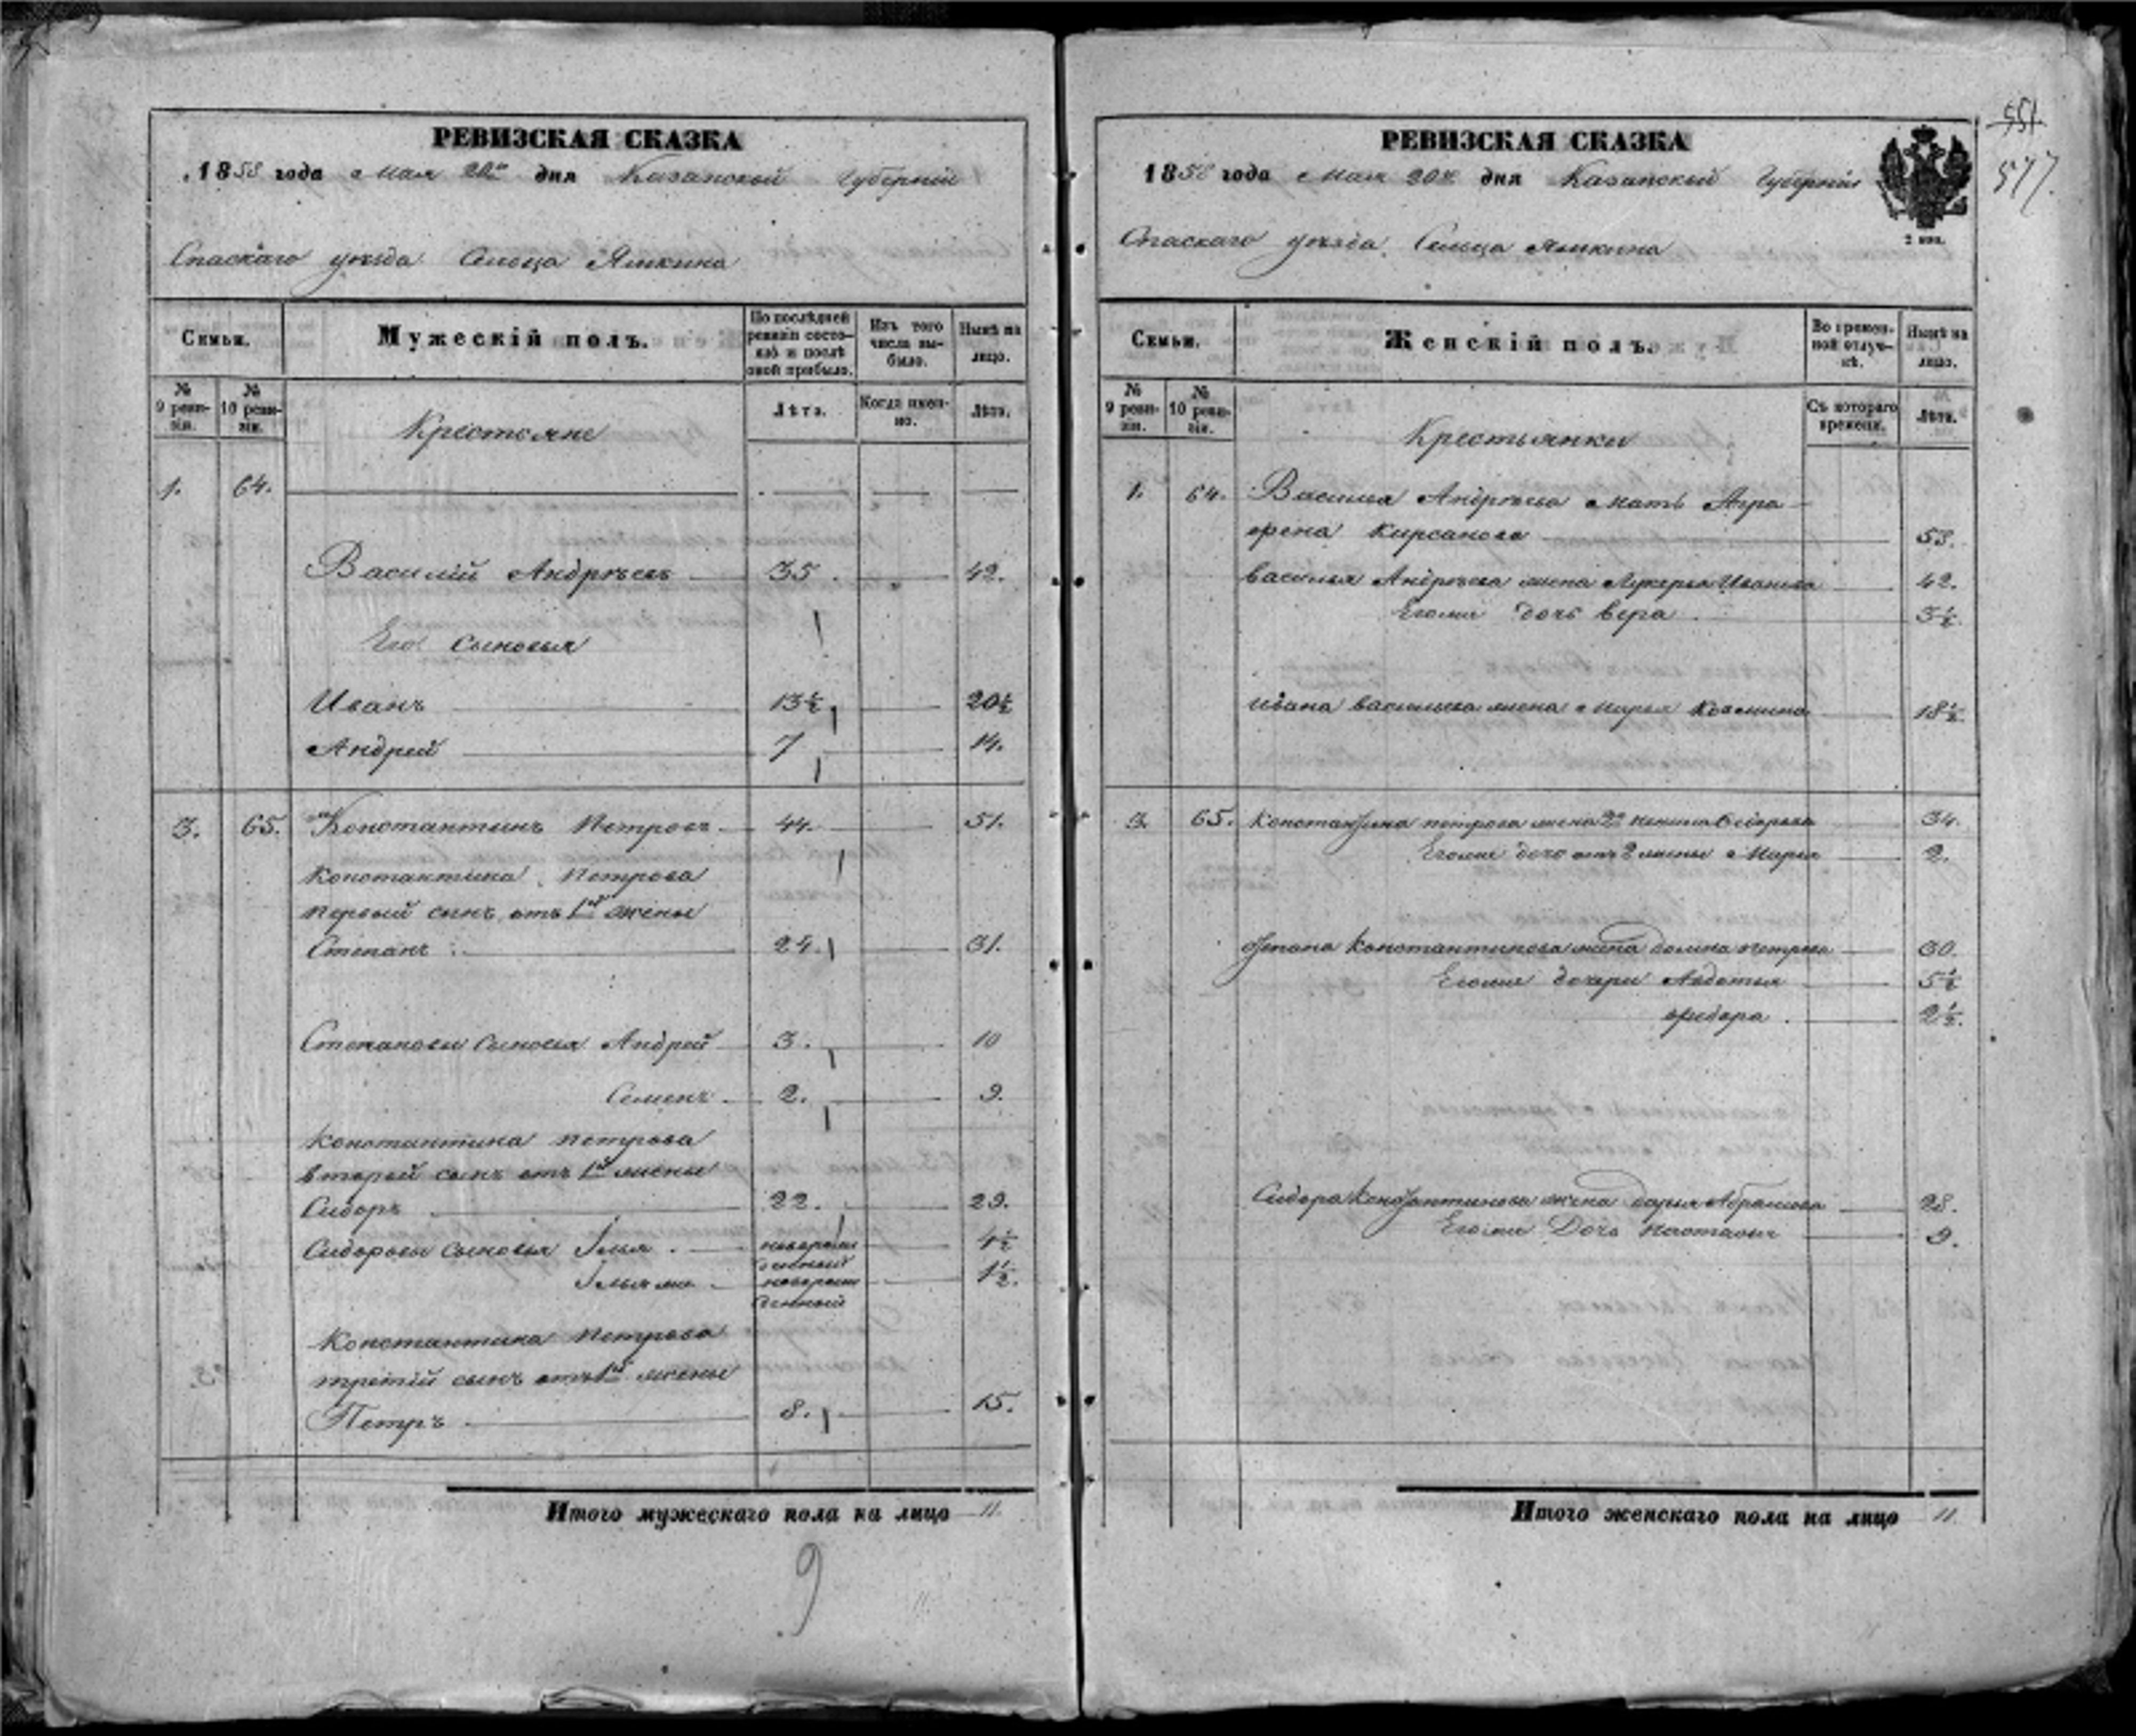 РЕВИЗСКАЯ СКАЗКА
1858 года Мая 20го дня Казанской Губернии
Спаскаго уезда Сельца Ямкина
Семьи.
Мужескій полъ.
По послѣдней ревизіи состояло и послѣ оной прибыло.
Изъ того числа выбыло.
Нынѣ на лицо.
№ 9 ревизіи.
№ 10 ревизіи.
Крестьяне
Лѣта.
Когда именно.
Лѣта.
1. 64.
Василій Андрѣевъ 35. 42.
Его сыновья
Иванъ 13½ 20½
Андрей 7 14.
3. 65. Константинъ Петровъ 44. 51.
Константина Петрова
первый сынъ отъ 1й жены
Степанъ 24. 31.
Степановы сыновья Андрей 3. 10
Семенъ 2. 9.
Константина Петрова
второй сынъ отъ 1й жены
Сидоръ 22. 29.
Сидоровы сыновья новорожденный 4½
новорожденный 1½.
Константина Петрова
третій сынъ отъ 1й жены
Петръ 8. 15.
Итого мужескаго пола на лицо 11.
9
РЕВИЗСКАЯ СКАЗКА
1858 года Мая 20го дня Казанской Губерніи
Спаскаго уезда Сельца Ямкина
2 коп.
551
577.
Семьи.
Женскій полъ.
Во временной отлучкѣ.
Нынѣ на лицо.
№ 9 ревизіи.
№ 10 ревизіи.
Крестьянки
Съ котораго времени.
Лѣта.
1. 64. Василья Андрѣева мать Агра-
фена Кирсанова 53.
Василья Андрѣева жена Лукерья Иванова 42.
Егоже дочь Вера 3½
Ивана Васильева жена Марья Козмина 18½
3. 65. Константина Петрова жена 2я 34.
Егоже дочь отъ 2 жены Марья 2.
Степана Константинова жена Домна Петрова 30.
Егоже дочери Авдотья 5½
Федора 2½.
Сидора Константинова жена Дарья Абрамова 28.
Егоже Дочь Настасья 9.
Итого женскаго пола на лицо 11.